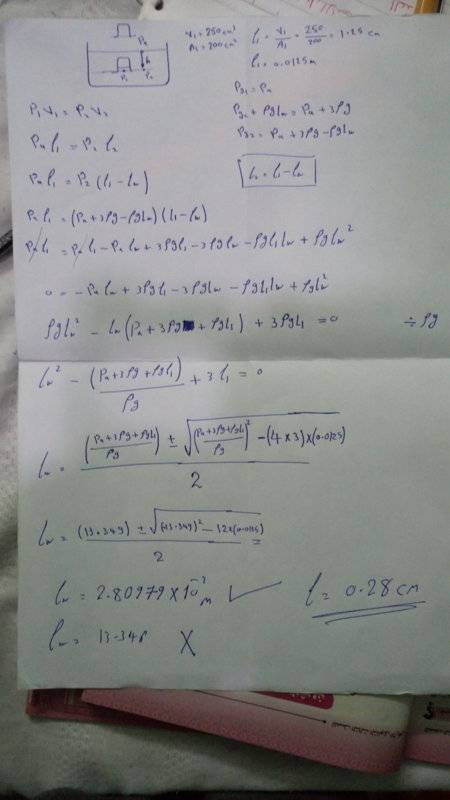 V₁ = 250 cm³
A₁ = 200 cm²
l₁ = V₁/A₁ = 250/200 = 1.25 cm
l₁ = 0.0125 m
Pₐ
h
P₁ P₂
P₁V₁ = P₂V₂
Pₐl₁ = P₂l₂
Pₐl₁ = P₂(l₁-lw)
Pg₁ = Pₐ
Pg₂ + ρglw = Pₐ + 3ρg
Pg₂ = Pₐ + 3ρg - ρglw
l₂ = l₁ - lw
Pₐl₁ = (Pₐ+3ρg-ρglw)(l₁-lw)
Pₐl₁ = Pₐl₁ - Pₐlw + 3ρgl₁ - 3ρglw - ρgl₁lw + ρglw²
0 = -Pₐlw + 3ρgl₁ - 3ρglw - ρgl₁lw + ρglw²
ρglw² - lw(Pₐ + 3ρg + ρgl₁) + 3ρgl₁ = 0 ÷ ρg
lw² - (Pₐ+3ρg+ρgl₁)/ρg + 3l₁ = 0
lw = ((Pₐ+3ρg+ρgl₁)/ρg) ± √((Pₐ+3ρg+ρgl₁)/ρg)² - (4×3)×(0.0125) / 2
lw = (13.349) ± √(13.349)² - 12×(0.0125) / 2 =
lw = 2.80979×10⁻³ m ✓ l = 0.28 cm
lw = 13.348 X